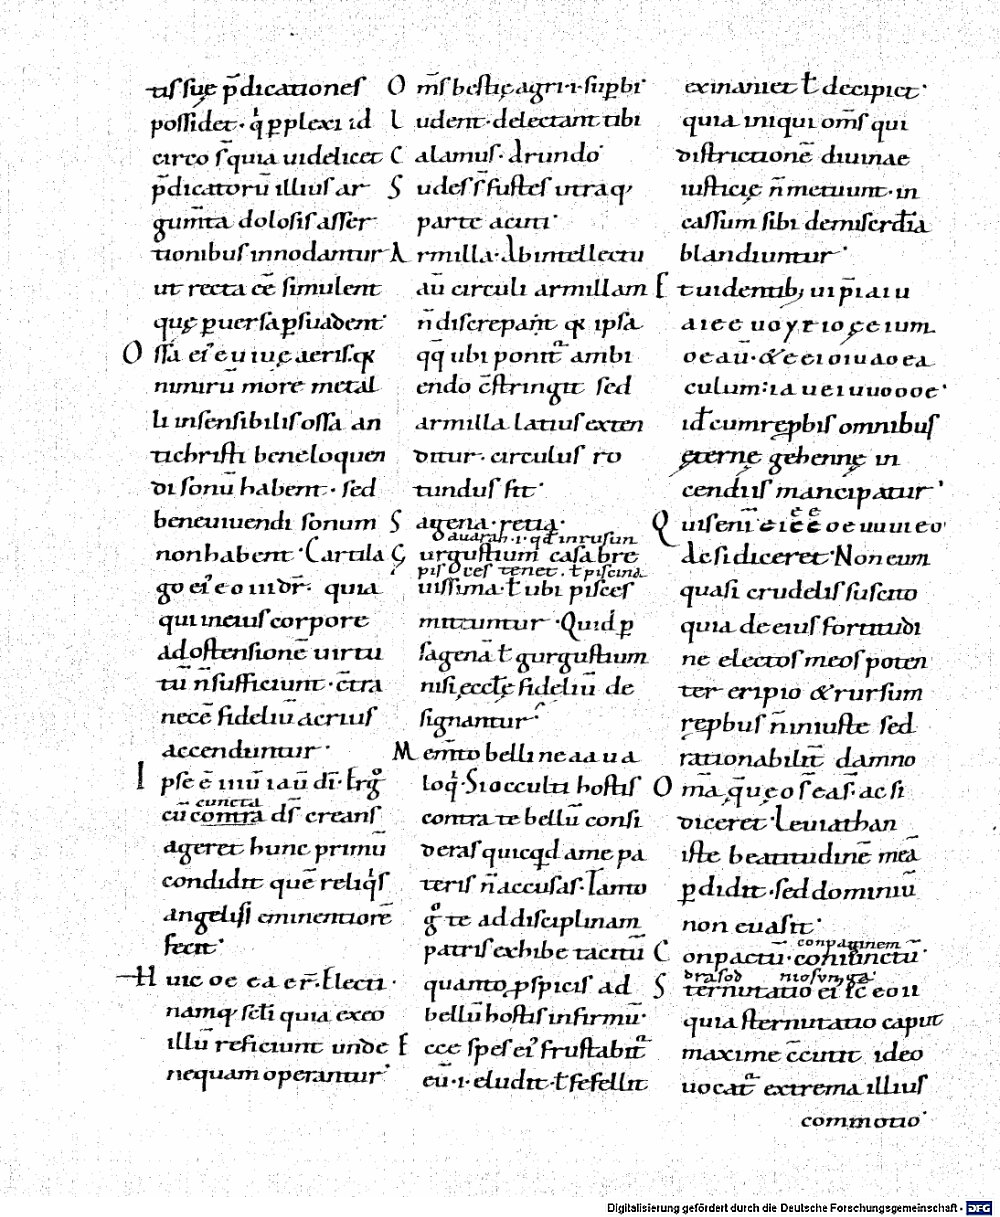 tis suę p̄dicationes
possidet · q̍ pplexi id
circo s̄ quia uidelicet
p̄dicatorū illius ar
gum̄ta dolosis asser
tionibus innodantur
ut recta cē simulent
quę puersa psuadent·
Ossa ei᾿ e u i u ę aeris. qx
nimirū more metal
li insensibilis ossa an
tichristi beneloquen
di sonū habent · sed
beneuiuendi sonum
non habent · Cartila
go ei᾿ e o ui dr̄. quia
qui in eius corpore
ad ostensionē uirtu
tū n̄ sufficiunt · c̄tra
necē fideliū acrius
accenduntur ·
Ipse ē inū iaū dī. Ergͦ
cuncta
cū contra ds̄ creans
ageret hunc primū
condidit quē reliq̍s
angelis eminentiorē
fecit·
Huic o e e a er̄. Electi ·
namq; sct̄i quia exeo
illū reficiunt unde
nequam operantur·
Om̄s bestię agri ·i· supbi·
Ludent · delectant tibi
Calamus · Arundo·
Sudes s̄ fustes utraq;
parte acuti·
Armilla · Ab intellectu
aū circuli armillam
n̄ discrepant qx ipsa
qq̄ ubi ponit᷒ ambi
endo c̄stringit sed
armilla latius exten
ditur · circulus ro
tundus sit·
Sagena · retia·
dauarah ·i· qđ inrusun
Gurgustium casa bre
pisces tenet · ł piscina
uissima · ł ubi pisces
mittuntur · Quid p
sagenā ł gurgustium
nisi ęcclę fideliū de
signantur·
Mem̄to belli ne a a u a
loq̍. Si occulti hostis
contra te bellū consi
deras quicqđ a me pa
teris n̄ accusas. Tanto
gͦ te ad disciplinam
patris exhibe tacitū
quanto pspicis ad
bellū hostis infirmū·
Ecce spes ei᾿ frustabit᷒
eū ·i· eludit · ł fefellit
exinaniet ł decipiet·
quia iniqui om̄s qui
districtionē diuinae
iusticię n̄ metuunt · in
cassum sibi de miscrđia
blandiuntur·
Et uidentib; ui p̄ i a i u
a i e e u o y r i o ę e i u m
o e aū · & e c i o i u a o e a
culum : i a u e i u u o o o e ·
iđ cum repbis omnibus
ęternę gehennę in
cendiis mancipatur·
Qui seni e i e e o e u u u i e o
Ac si diceret · Non eum
quasi crudelis suscito
quia de eius fortitudi
ne electos meos poten
ter eripio & rursum
repbus n̄ iniuste sed
rationabilit̄ damno
Om̄a q̄ ę o s̄ eas. ac si
diceret · Leuiathan
iste beatitudinē meā
pdidit · sed dominiū
non euasit·
conpaginem
Conpactū · coniunctū·
drasod niosunga·
Sternutatio ei᾿ sc̄ e o ii
quia sternutatio caput
maxime c̄cutit ideo
uocat᷒ extrema illius
commotio·
Digitalisierung gefördert durch die Deutsche Forschungsgemeinschaft - DFG